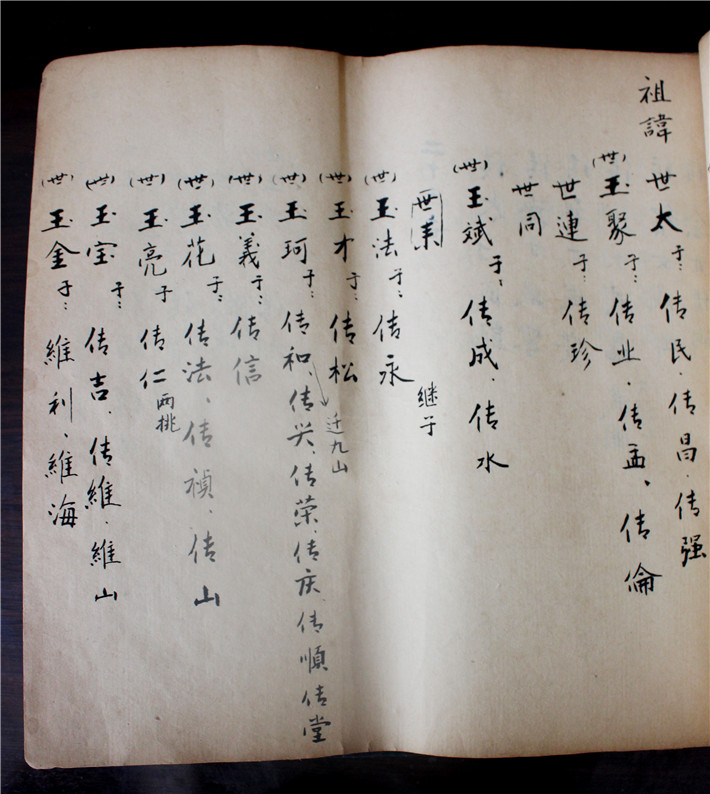 祖諱
世太 子：传民、传昌、传强
(世)玉聚 子：传业、传孟、传倫
世連 子 传珍
世同
(世)玉斌 子：传成、传水
世美
(世)玉法 子：传永 继子
(世)玉才 子：传松 迁九山
(世)玉珂 子：传和、传兴、传荣、传庆 传順 传堂
(世)玉義 子：传信
(世)玉花 子：传法、传禎、传山
(世)玉亮 子 传仁 两挑
(世)玉宝 子：传吉、传維、維山
(世)玉金 子：維利、維海